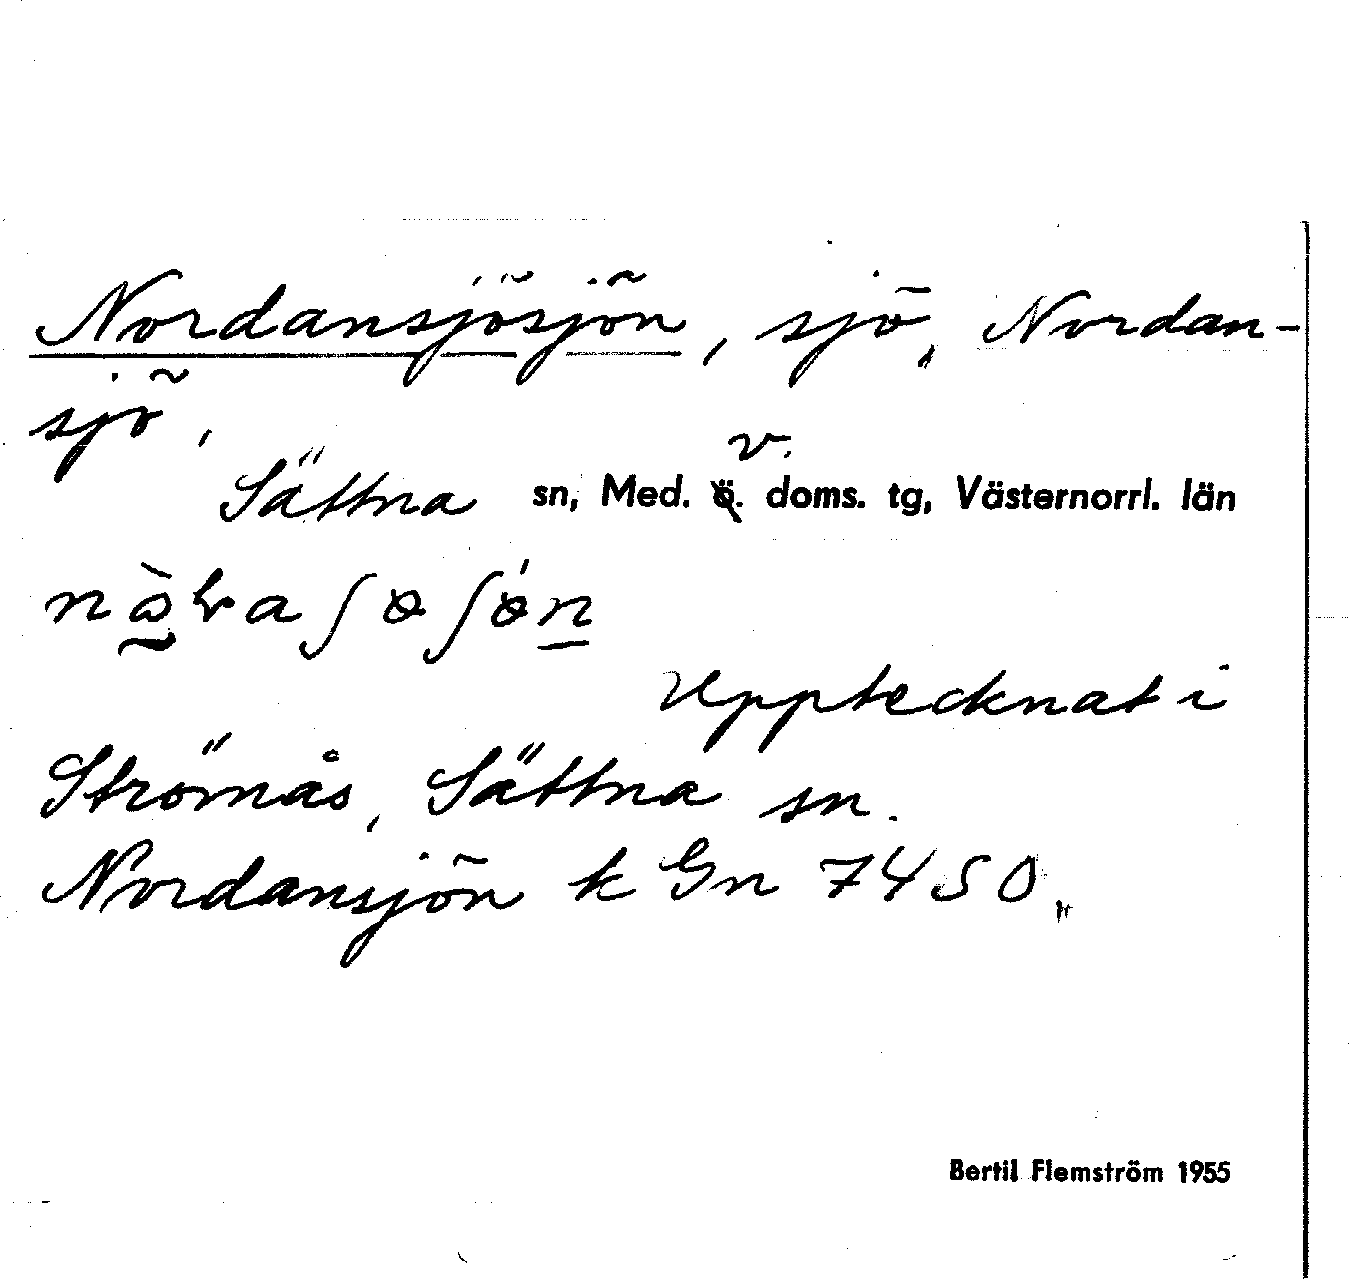 Nordansjösjön, sjö, Nordan-
sjö,
v.
Sättna sn, Med. ö. doms. tg, Västernorrl. län
Upptecknat i
Strömås, Sättna sn.
Nordansjön k Gn 7450,,
Bertil Flemström 1955